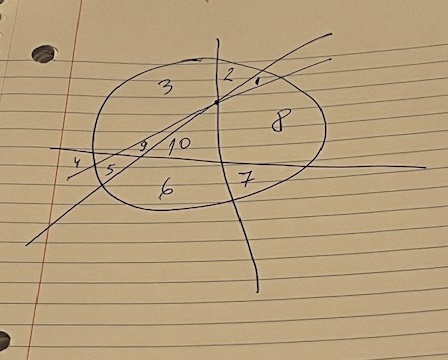 3 2
8
9 10
4 5
6 7